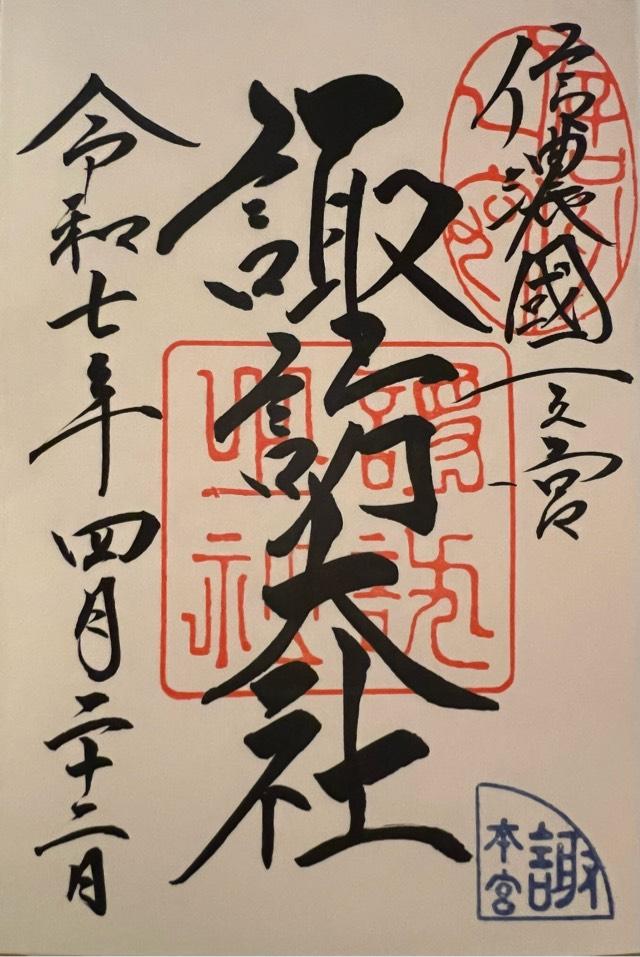 信濃國一之宮
諏訪大社
令和七年四月二十二日
諏
本宮